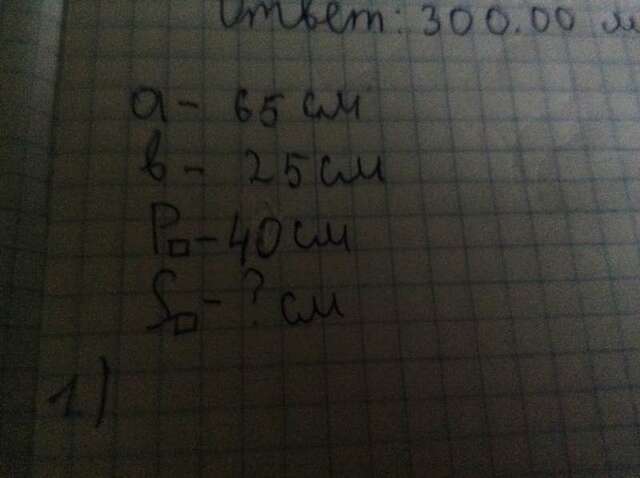 Ответ: 300.00 м
a - 65 см
в - 25 см
P□ - 40 см
S□ - ? см
1)